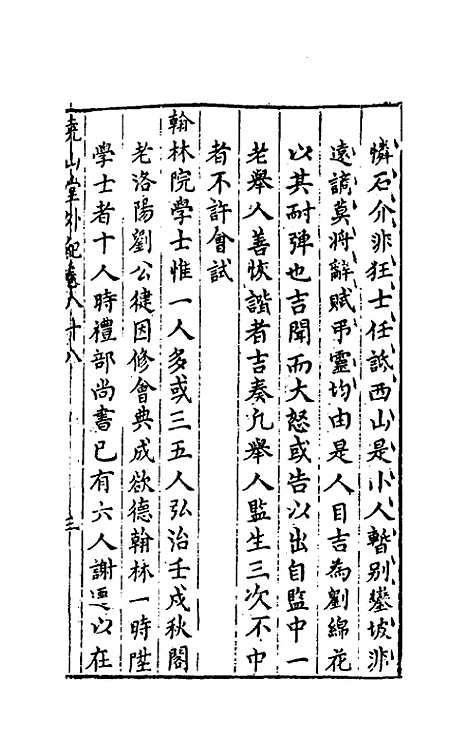 憐石介非狂士任詆西山是小人暫别鑾坡非
遠謫莫將辭賦弔靈均由是人目吉為劉綿花
以其耐彈也吉聞而大怒或告以出自監中一
老舉人善恢諧者吉奏凢舉人監生三次不中
者不許會試
翰林院學士惟一人多或三五人弘治壬戌秋閣
老洛陽劉公徤因修會典成欲德翰林一時陞
學士者十人時禮部尚書已有六人謝遷以在
堯山堂外紀卷八十八 三